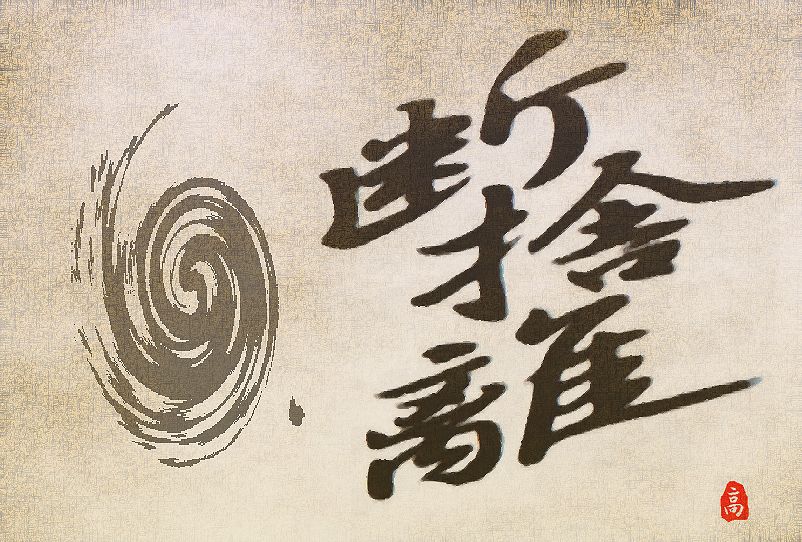 断
捨
離
高